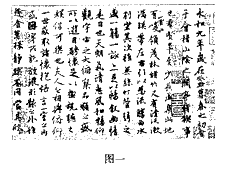 永和九年歲在癸丑暮春之初會
于會稽山陰之蘭亭脩稧事
也群賢畢至少長咸集此地
有崇山峻領茂林脩竹又有清流激
湍暎帶左右引以為流觴曲水
列坐其次雖無絲竹管弦之
盛一觴一詠亦足以暢敘幽情
是日也天朗氣清惠風和暢仰
觀宇宙之大俯察品類之盛
所以遊目騁懷足以極視聽之
娛信可樂也夫人之相與俯仰
一世或取諸懷抱悟言一室之內
或因寄所託放浪形骸之外雖
趣舍萬殊靜躁不同當其欣
图一